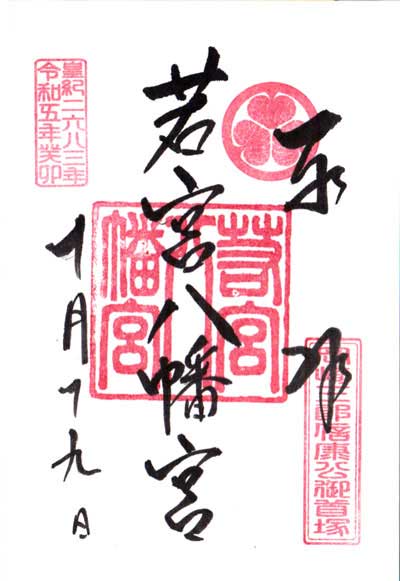 奉拝
若宮八幡宮
十月十九日
皇紀二六八三年
令和五年癸卯
若宮
八幡宮
三郎信康公御首塚